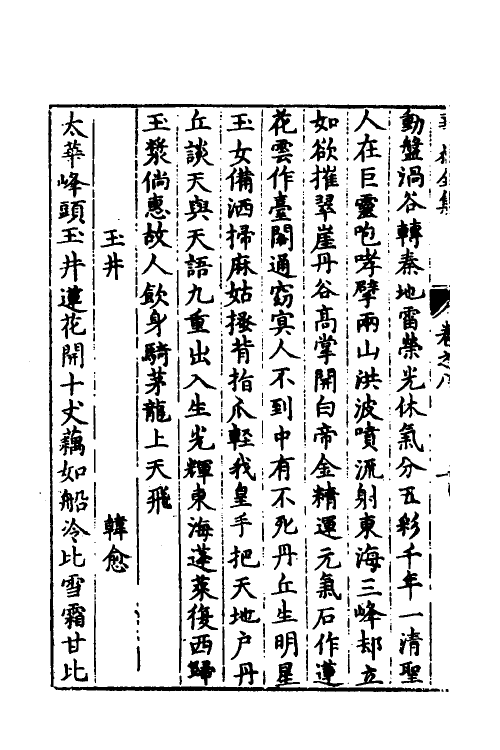 動盤渦谷轉秦地雷榮光休氣分五彩千年一清聖
人在巨靈咆哮擘兩山洪波噴流射東海三峰却立
如欲摧翠崖丹谷高掌開白帝金精運元氣石作蓮
花雲作臺閣道窈冥人不到中有不死丹丘生明星
玉女備洒掃麻姑搔背指爪輕我皇手把天地户丹
丘談天與天語九重出入生光輝東海蓬萊復西歸
玉漿倘惠故人飲身騎茅龍上天飛
玉井 韓愈
太華峰頭玉井蓮花開十丈藕如船冷比雪霜甘比
卷之八